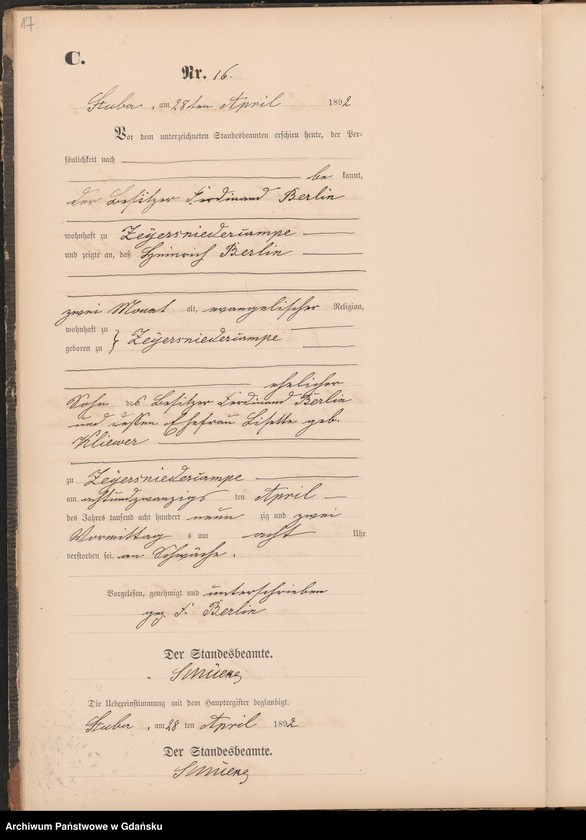 17
C.
Nr. 16.
Stuba, am 28ten April 1892
Vor dem unterzeichneten Standesbeamten erschien heute, der Per-
sönlichkeit nach
be kannt,
der Besitzer Ferdinand Berlin
wohnhaft zu Zeyersniedercampe
und zeigte an, daß Heinrich Berlin
zwei Monat alt, evangelischer Religion,
wohnhaft zu
geboren zu } Zeyersniedercampe
ehelicher
Sohn des Besitzer Ferdinand Berlin
und dessen Ehefrau Lisette geb.
Kliewer
zu Zeyersniedercampe
am achtundzwanzigs ten April
des Jahres tausend acht hundert neun zig und zwei
Vormittag s um acht Uhr
verstorben sei. an Schwäche.
Vorgelesen, genehmigt und unterschrieben
gez. F. Berlin
Der Standesbeamte.
Die Uebereinstimmung mit dem Hauptregister beglaubigt.
Stuba, am 28 ten April 1892
Der Standesbeamte.
Archiwum Państwowe w Gdańsku